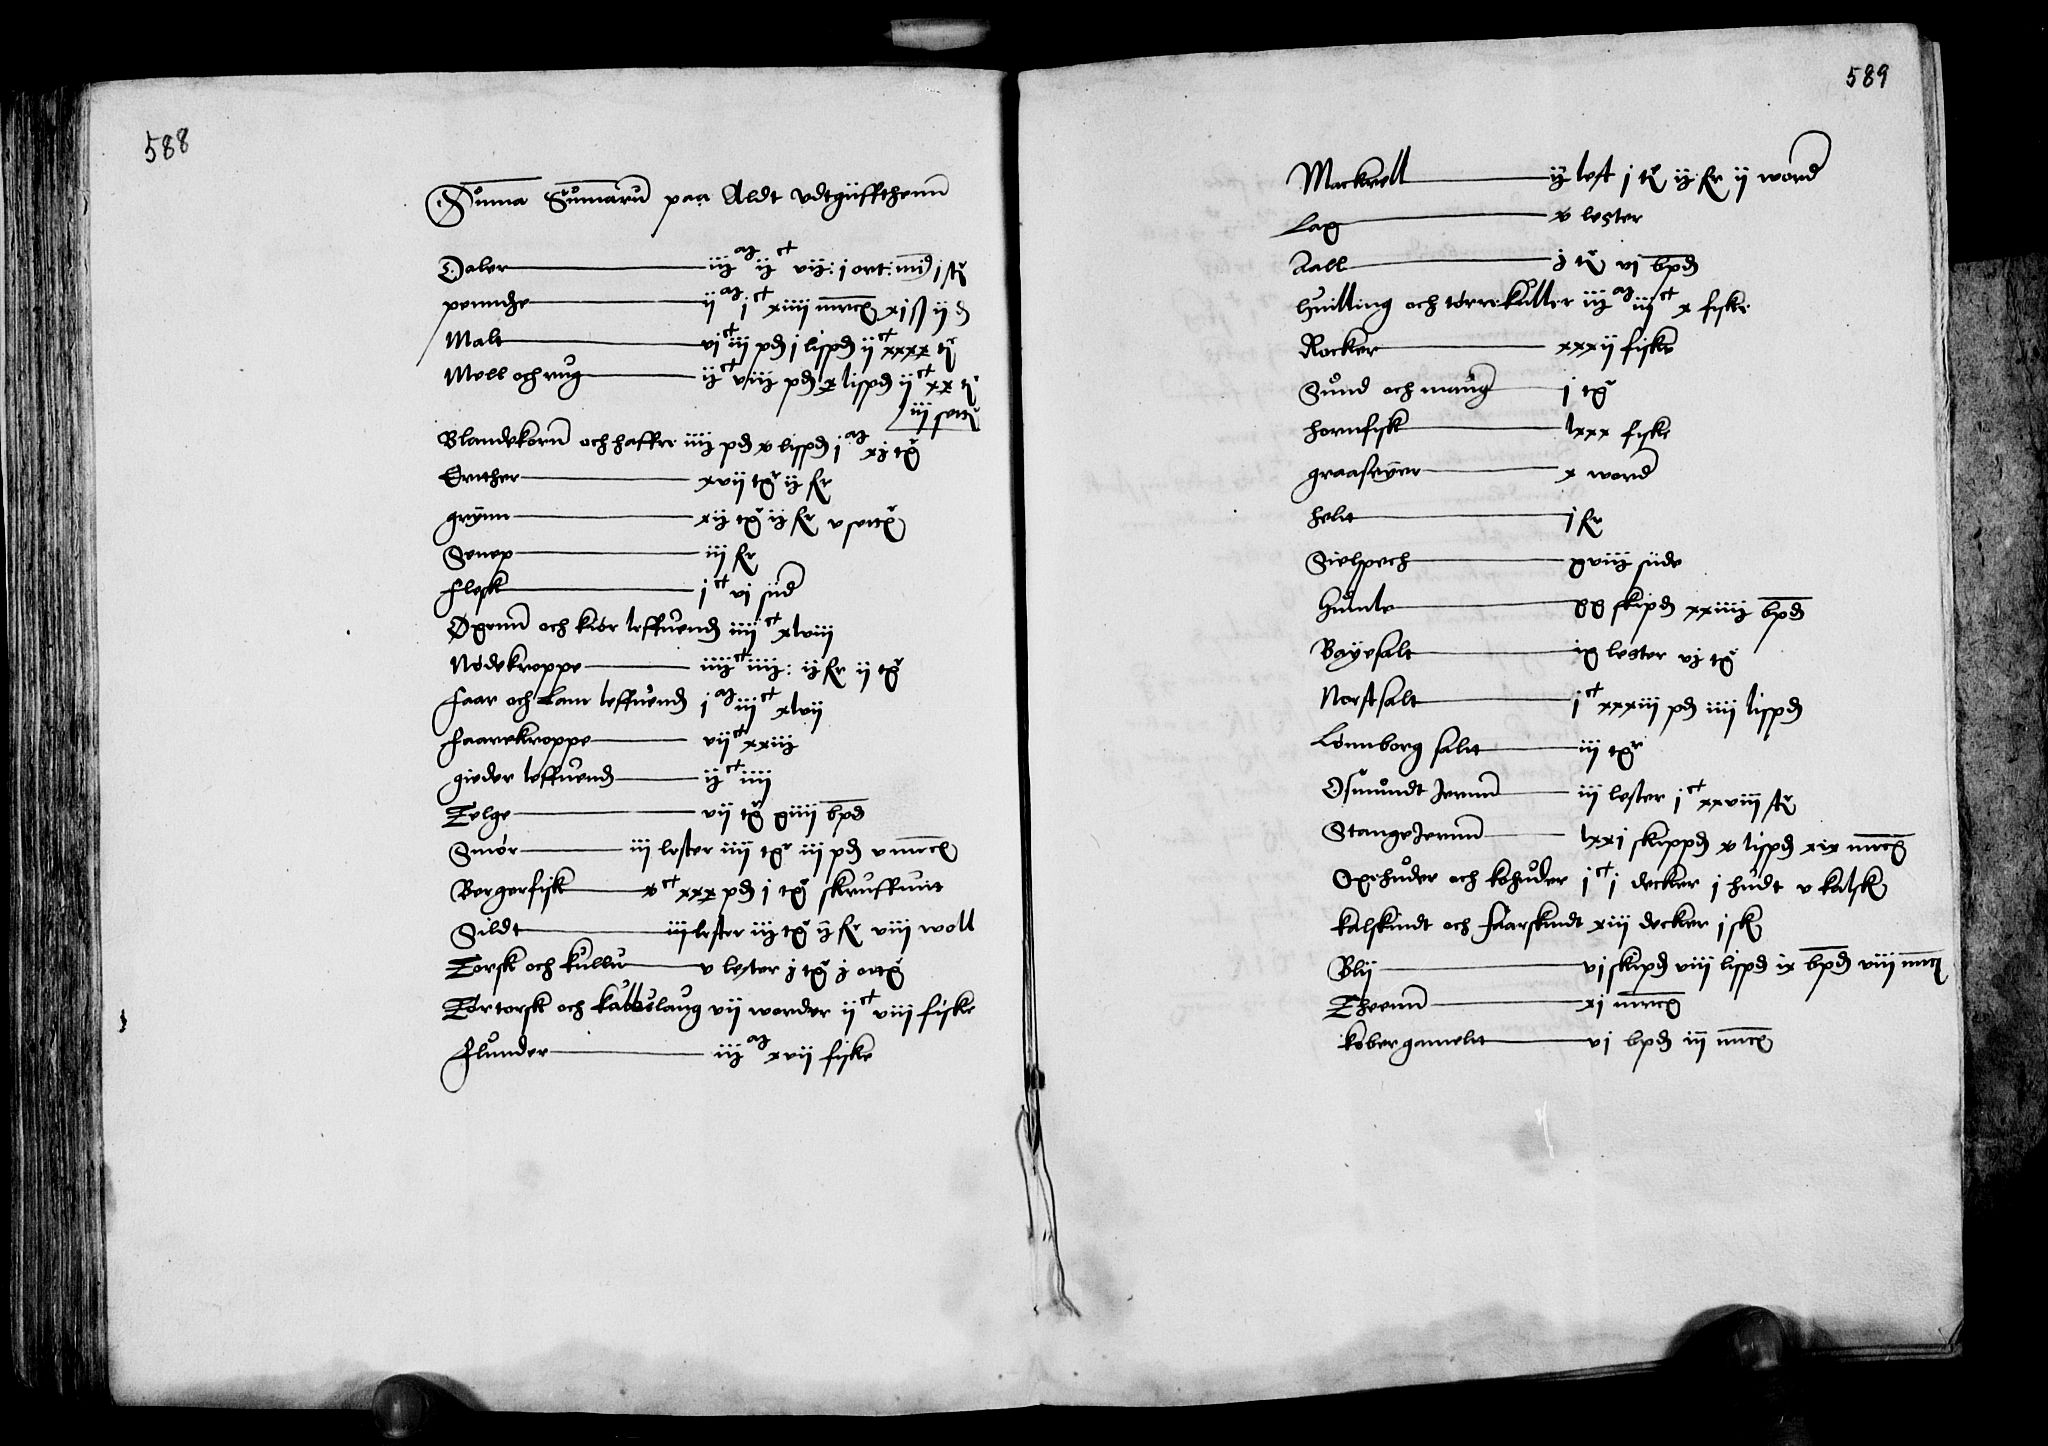 588
Summa Summarum paa Aldt vdtgiiffthenn
Daler iij m ij ct vij: j ort: mijd j st
penndge ij m j ct xiiij mrcg xj ß ij d
Malt vj ct iij pd j lispd ij ct xxxx tr
Mell och rug ij ct viij pd x lispd ij ct xx tr
iij sett
Blandekornn och haffre iiij pd x lispd j m xj tgr
Erther xvij tgr ij fr
grynn xij tgr ij fr v settgr
Senep iij fr
Flesk j ct vj siid
Øxenn och kiør leffuend iiij ct xlviij
Nødekroppe iiij ct iiij: ij fr ij tgr
Faar och Lam leffuend j m iij ct xlvij
Faarekroppe vij ct xxiij
gieder leffuend ij ct iiij
Telge vij tgr xiiij bpd
Smør iij lester iiij tgr iij pd v mrcg
Bergerfisk x ct xxx pd j tgr skruffuit
Sildt iij lester iij tgr ij fr viij woll
Torsk och kuller v lester j tgr j ortg
Tør torsk och kabbelaug vij worder ij ct viij fiske
Flunder iij m xvij fiske
589
Mackrell ij lest j tr ij fr ij word
Lax x lester
Aall j tr vj bpd
huilling och tørrekuller iij m iij ct x fiske
Rocker xxxij fiske
Sund och maug j tgr
hornfisk lxxx fiske
graaseyer x word
helt j fr
Sielspech xviij siide
Humle xx skipd xxiiij bpd
Bayesalt ix lester vj tgr
Norstsalt j ct xxxiij pd iiij lispd
Lønnborg salt iij tgr
Osmundt Jernn iij lester j ct xxviij str
StangeJernn lxxj skippd x lispd xix mrcg
Oxehuder och kohuder j ct j decker j hudt v kalsk
kalskindt och faarskindt xiij decker j sk
Blij vj skipd viij lispd ix bpd viij mrcg
Theenn xj mrcg
kobergamelt vj bpd iij mrcg